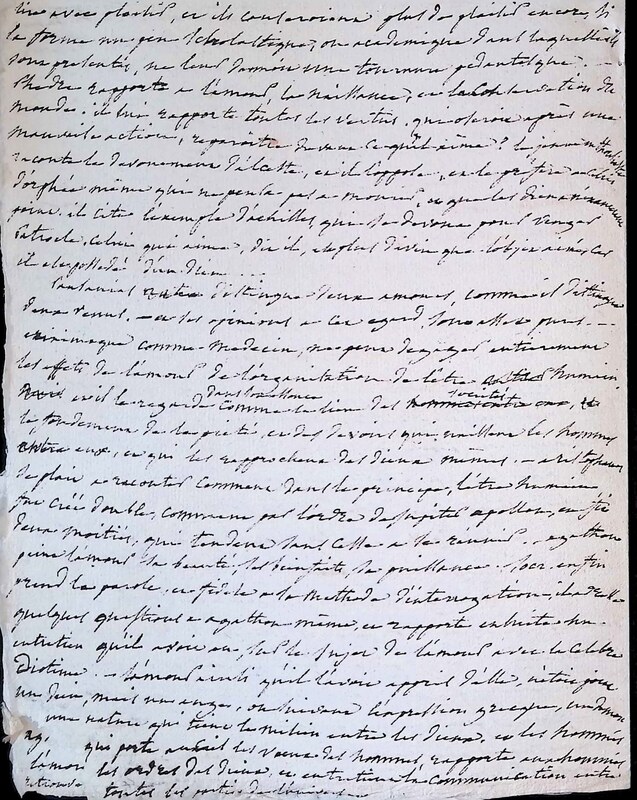 lire avec plaisir, et ils causeroient plus de plaisir encore, si
la forme un peu scholastique, ou academique dans laquelle ils
sont presentés, ne leur donnoit une tournure pedantesque. —
Phedre rapporte a l'amour, la naissance, et la conservation du
monde. il lui rapporte toutes les vertus. qui oseroit après une
mauvaise action, reparoitre devant ce qu'il aime? le jeune
raconte le devouement d'alceste, et il l'oppose, et la prefere a celui
d'orphée meme qui ne pensa pas a mourir, et que les dieux
il cite l'exemple d'achilles, qui se devoua pour venger
Patrocle. celui qui aime, dit il, est plus divin que l'objet aimé, car
il est possedé d'un dieu ...
Pausanias distingue deux amours, comme il distingue
deux venus. — et ses opinions a cet egard, sont assez pures. —
eriximaque comme medecin, ne peut degager entierement
les effets de l'amour de l'organisation de l'etre humain.
mais il le regarde dans son essence comme le lien des societés,
le fondement de la pieté, et des devoirs qui unissent les hommes
entre eux, et qui les rapprochent des dieux mêmes. — aristophane
se plait a raconter comment dans le principe, l'etre humain
fut créé double, comment par l'ordre de jupiter apollon, en fit
deux moitiés, qui tendent sans cesse a se reunir. — agathon
peint l'amour, sa beauté, ses bienfaits, sa puissance. Socr. enfin
prend la parole, et fidele a sa methode d'interrogation, il adresse
quelques questions a agathon même, et rapporte ensuite un
entretien qu'il avoit eu, sur le sujet de l'amour avec la celebre
Diotime. — l'amour ainsi qu'il l'avoit appris d'elle, n'etoit point
un dieu, mais un ange, ou suivant l'expression grecque, un demon
une nature qui tient le milieu entre les dieux, et les hommes
qui porte aux dieux les voeux des hommes, rapporte aux hommes
les ordres des dieux, et entretient la communication entre
toutes les parties de l'univers. —